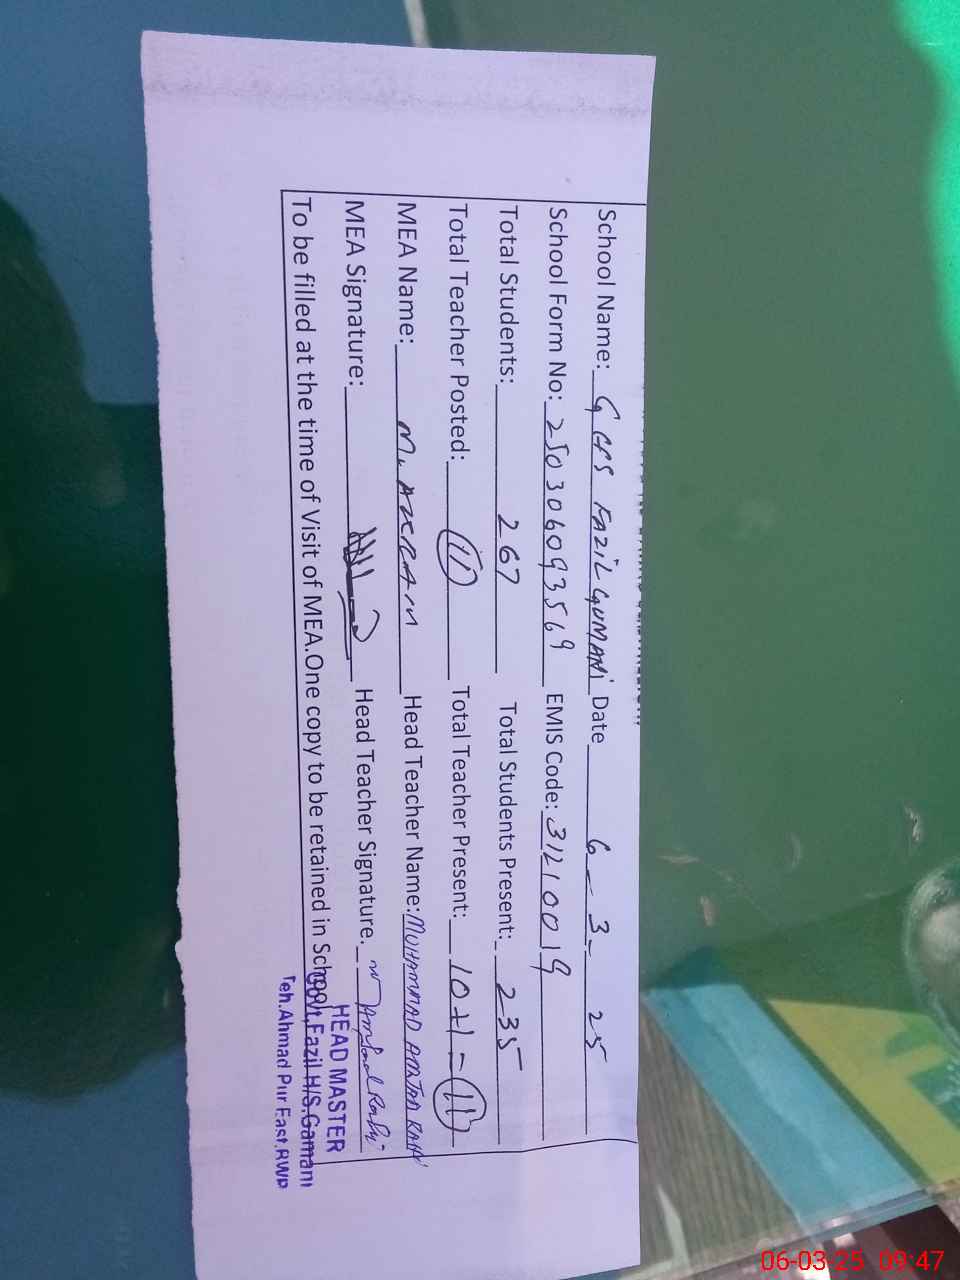 School Name: GHS FAZIL GUMANI Date 6-3-25
School Form No: 250306093569 EMIS Code: 31210019
Total Students: 267 Total Students Present: 235
Total Teacher Posted: 11 Total Teacher Present: 10+1=11
MEA Name: M. AKRAM Head Teacher Name: MUHAMMAD
MEA Signature: Head Teacher Signature.
To be filled at the time of Visit of MEA.One copy to be retained in School
HEAD MASTER
Govt.Fazil H/S.Gamani
Teh.Ahmad Pur East.BWP
06-03-25 09:47